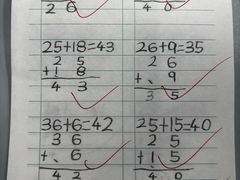 2 6 4 0
25+18=43 26+9=35
2 5 2 6
+1 8 +. 9
4 3 3 5
36+6=42 25+15=40
3 6 2 5
+. 6 +1 5
4 2 4 0